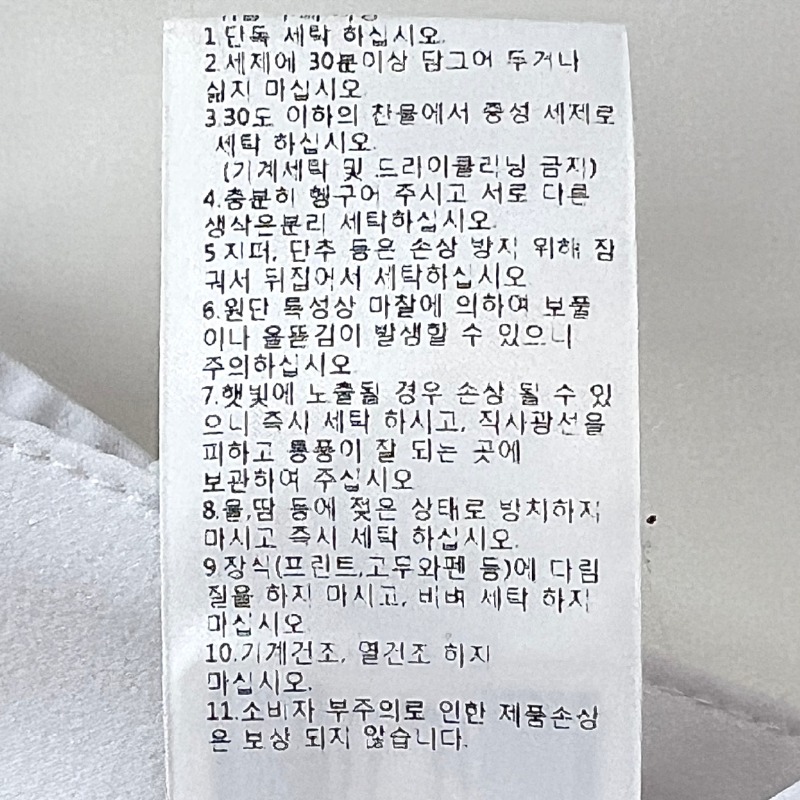 취급 주의 사항
1.단독 세탁 하십시오.
2.세제에 30분이상 담그어 두거나
삶지 마십시오.
3.30도 이하의 찬물에서 중성 세제로
세탁 하십시오.
(기계세탁 및 드라이클리닝 금지)
4.충분히 헹구어 주시고 서로 다른
생삭은분리 세탁하십시오.
5 지퍼, 단추 등은 손상 방지 위해 잠
궈서 뒤집어서 세탁하십시오
6.원단 특성상 마찰에 의하여 보풀
이나 올뜯김이 발생할 수 있으니
주의하십시오.
7.햇빛에 노출될 경우 손상 될 수 있
으니 즉시 세탁 하시고, 직사광선을
피하고 통풍이 잘 되는 곳에
보관하여 주십시오
8.물,땀 등에 젖은 상태로 방치하지
마시고 즉시 세탁 하십시오.
9 장식(프린트,고무와펜 등)에 다림
질을 하지 마시고, 비벼 세탁 하지
마십시오.
10.기계건조, 열건조 하지
마십시오.
11.소비자 부주의로 인한 제품손상
은 보상 되지 않습니다.